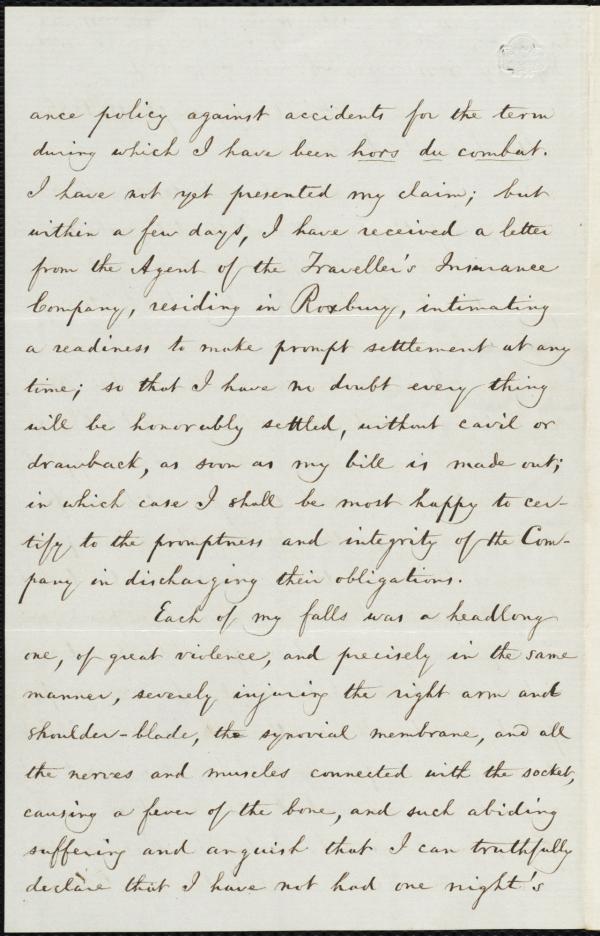 ance policy against accidents for the term
during which I have been hors du combat.
I have not yet presented my claim; but
within a few days, I have received a letter
from the Agent of the Traveller's Insurance
Company, residing in Roxbury, intimating
a readiness to make prompt settlement at any
time; so that I have no doubt every thing
will be honorably settled, without cavil or
drawback, as soon as my bill is made out;
in which case I shall be most happy to cer-
tify to the promptness and integrity of the Com-
pany in discharging their obligations.
Each of my falls was a headlong
one, of great violence, and precisely in the same
manner, severely injuring the right arm and
shoulder-blade, the synovial membrane, and all
the nerves and muscles connected with the socket,
causing a fever of the bone, and such abiding
suffering and anguish that I can truthfully
declare that I have not had one night's